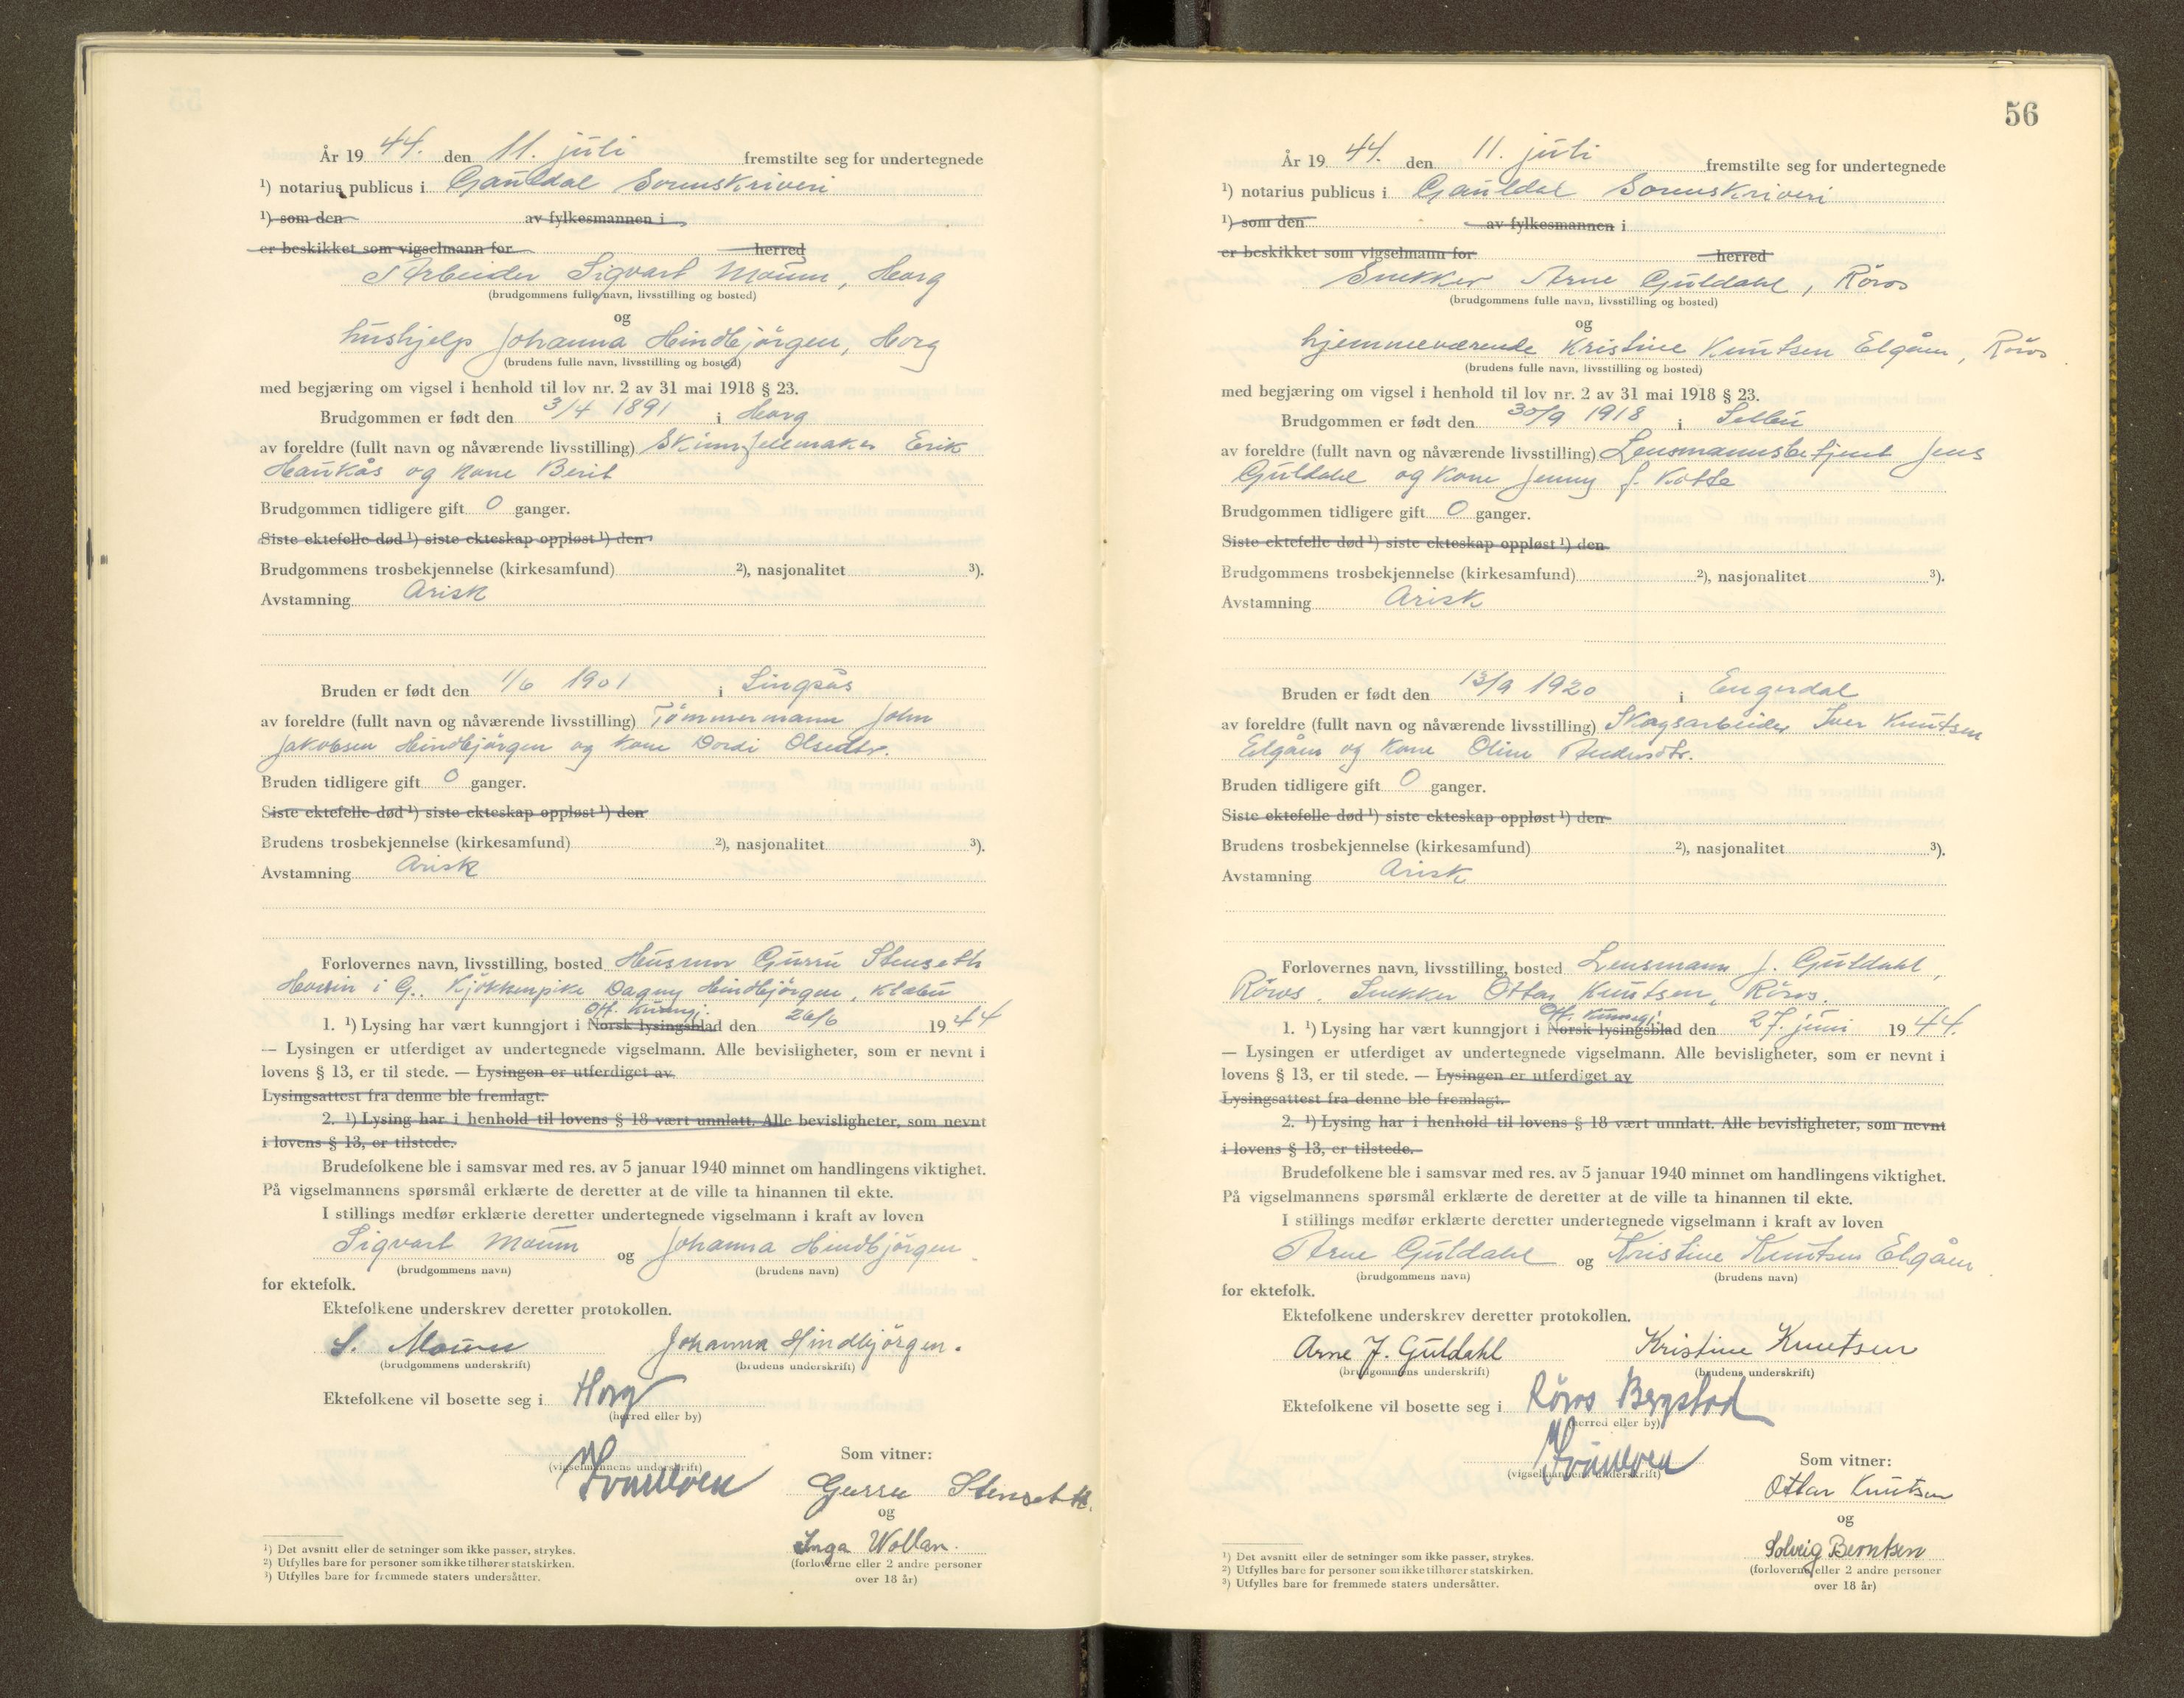 År 1944. den 11. juli fremstilte seg for undertegnede
¹) notarius publicus i Gauldal Sorenskriveri
¹) som den av fylkesmannen i
er beskikket som vigselmann for herred
Arbeider Sigvart Moum, Horg
(brudgommens fulle navn, livsstilling og bosted)
og
hushjelp Johanna Hindbjörgen, Horg
(brudens fulle navn, livsstilling og bosted)
med begjæring om vigsel i henhold til lov nr. 2 av 31 mai 1918 § 23.
Brudgommen er født den 3/4 1891 i Horg
av foreldre (fullt navn og nåværende livsstilling) Erik
Haukås og kone Berit
Brudgommen tidligere gift 0 ganger.
Siste ektefelle død ¹) siste ekteskap oppløst ¹) den
Brudgommens trosbekjennelse (kirkesamfund) ²), nasjonalitet ³).
Avstamning Arisk
Bruden er født den 1/6 1901 i Singsås
av foreldre (fullt navn og nåværende livsstilling) Tömmermann John
Jakobsen Hindbjörgen og kone Dordi Olsedtr.
Bruden tidligere gift 0 ganger.
Siste ektefelle død ¹) siste ekteskap oppløst ¹) den
Brudens trosbekjennelse (kirkesamfund) ²), nasjonalitet ³).
Avstamning Arisk
Forlovernes navn, livsstilling, bosted Husmor Gurru Stenseth
Hovin i G. Kjökkenpike Dagny Hindbjörgen, Klæbu
Off. kunngj.
1. ¹) Lysing har vært kunngjort i Norsk lysingsblad den 26/6 1944
— Lysingen er utferdiget av undertegnede vigselmann. Alle bevisligheter, som er nevnt i
lovens § 13, er til stede. — Lysingen er utferdiget av
Lysingsattest fra denne ble fremlagt.
2. ¹) Lysing har i henhold til lovens § 18 vært unnlatt. Alle bevisligheter, som nevnt
i lovens § 13, er tilstede.
Brudefolkene ble i samsvar med res. av 5 januar 1940 minnet om handlingens viktighet.
På vigselmannens spørsmål erklærte de deretter at de ville ta hinannen til ekte.
I stillings medfør erklærte deretter undertegnede vigselmann i kraft av loven
Sigvart Moum og Johanna Hindbjörgen
(brudgommens navn) (brudens navn)
for ektefolk.
Ektefolkene underskrev deretter protokollen.
S. Moum Johanna Hindbjörgen.
(brudgommens underskrift) (brudens underskrift)
Ektefolkene vil bosette seg i Horg
(herred eller by)
Som vitner:
(vigselmannens underskrift)
Gurru Stenseth.
og
Inga Wollan.
(forloverne eller 2 andre personer
over 18 år)
¹) Det avsnitt eller de setninger som ikke passer, strykes.
²) Utfylles bare for personer som ikke tilhører statskirken.
³) Utfylles bare for fremmede staters undersåtter.
56
År 1944. den 11. juli fremstilte seg for undertegnede
¹) notarius publicus i Gauldal Sorenskriveri
¹) som den av fylkesmannen i
er beskikket som vigselmann for herred
Snekker Arne Guldahl, Röros
(brudgommens fulle navn, livsstilling og bosted)
og
hjemmeværende Kristine Knutsen Elgåen, Röros
(brudens fulle navn, livsstilling og bosted)
med begjæring om vigsel i henhold til lov nr. 2 av 31 mai 1918 § 23.
Brudgommen er født den 30/9 1918 i Selbu
av foreldre (fullt navn og nåværende livsstilling) Lensmannsbetjent Jens
Guldahl og kone Jenny f. Kotte
Brudgommen tidligere gift 0 ganger.
Siste ektefelle død ¹) siste ekteskap oppløst ¹) den
Brudgommens trosbekjennelse (kirkesamfund) ²), nasjonalitet ³).
Avstamning Arisk
Bruden er født den 13/9 1920 i Engerdal
av foreldre (fullt navn og nåværende livsstilling) Skogsarbeider Iver Knutsen
Elgåen og kone Oline Andersdtr.
Bruden tidligere gift 0 ganger.
Siste ektefelle død ¹) siste ekteskap oppløst ¹) den
Brudens trosbekjennelse (kirkesamfund) ²), nasjonalitet ³).
Avstamning Arisk
Forlovernes navn, livsstilling, bosted Lensmann J. Guldahl,
Röros. Snekker Ottar Knutsen, Röros.
Off. kunngj.
1. ¹) Lysing har vært kunngjort i Norsk lysingsblad den 27. juni 1944.
— Lysingen er utferdiget av undertegnede vigselmann. Alle bevisligheter, som er nevnt i
lovens § 13, er til stede. — Lysingen er utferdiget av
Lysingsattest fra denne ble fremlagt.
2. ¹) Lysing har i henhold til lovens § 18 vært unnlatt. Alle bevisligheter, som nevnt
i lovens § 13, er tilstede.
Brudefolkene ble i samsvar med res. av 5 januar 1940 minnet om handlingens viktighet.
På vigselmannens spørsmål erklærte de deretter at de ville ta hinannen til ekte.
I stillings medfør erklærte deretter undertegnede vigselmann i kraft av loven
Arne Guldahl og Kristine Knutsen Elgåen
(brudgommens navn) (brudens navn)
for ektefolk.
Ektefolkene underskrev deretter protokollen.
Arne J. Guldahl Kristine Knutsen
(brudgommens underskrift) (brudens underskrift)
Ektefolkene vil bosette seg i Röros Bergstad
(herred eller by)
Som vitner:
(vigselmannens underskrift)
Ottar Knutsen
og
Solveig Berntsen
(forloverne eller 2 andre personer
over 18 år)
¹) Det avsnitt eller de setninger som ikke passer, strykes.
²) Utfylles bare for personer som ikke tilhører statskirken.
³) Utfylles bare for fremmede staters undersåtter.